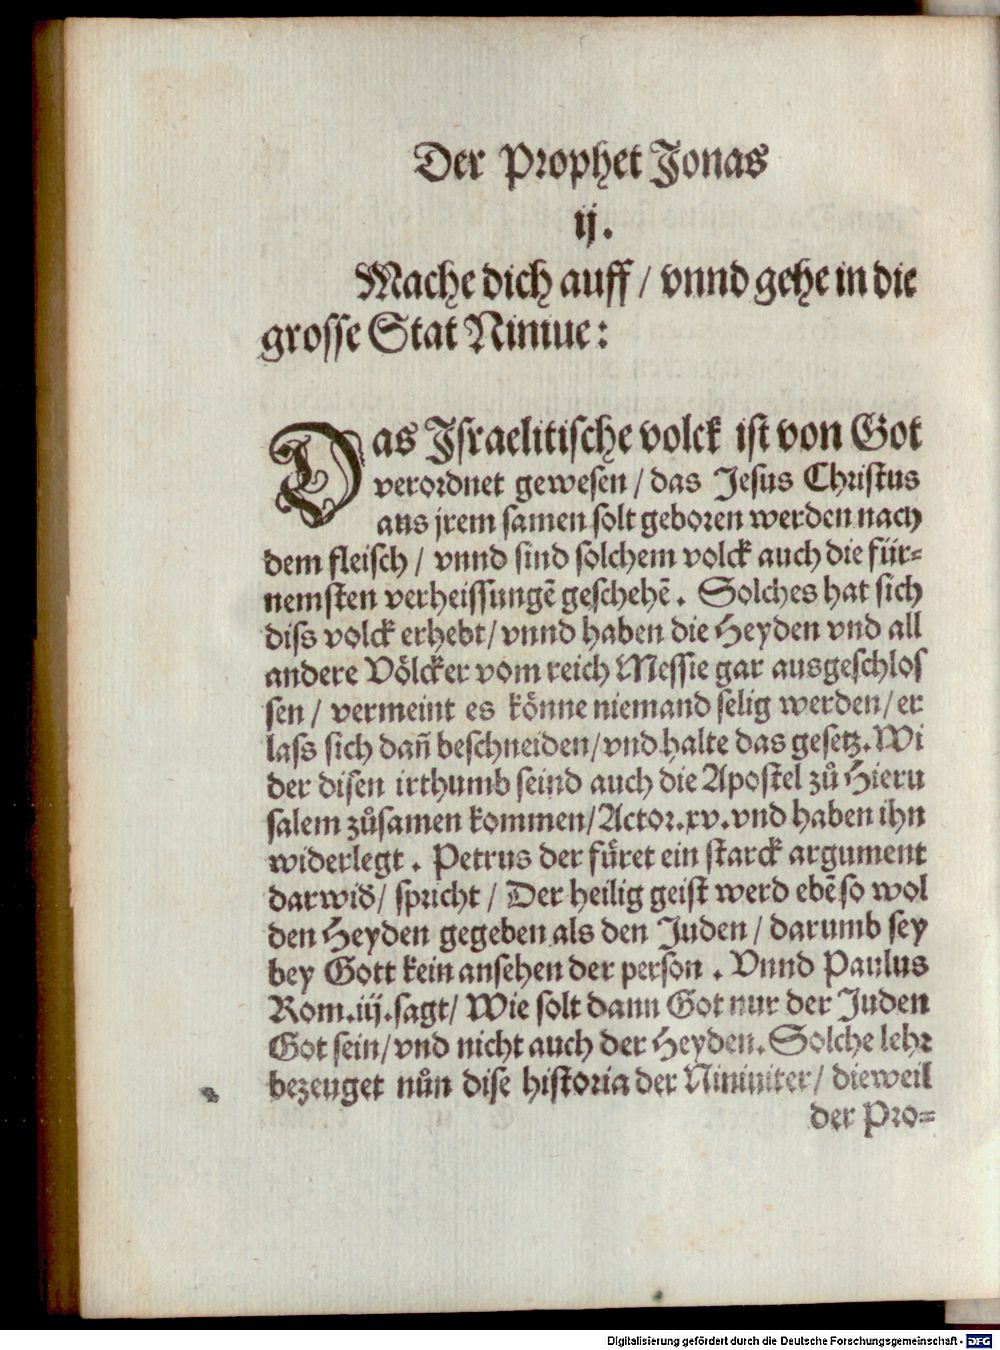 Der Prophet Jonas
ij.
Mache dich auff / vnnd gehe in die
grosse Stat Niniue:
Das Israelitische volck ist von Got
verordnet gewesen / das Jesus Christus
aus jrem samen solt geboren werden nach
dem fleisch / vnnd sind solchem volck auch die für-
nemsten verheissungẽ geschehẽ. Solches hat sich
diss volck erhebt/ vnnd haben die Heyden vnd all
andere Völcker vom reich Messie gar ausgeschlos
sen / vermeint es könne niemand selig werden/ er
lass sich dañ beschneiden/ vnd halte das gesetz. Wi
der disen irthumb seind auch die Apostel zů Hieru
salem zůsamen kommen/ Actor. xv. vnd haben ihn
widerlegt. Petrus der füret ein starck argument
darwid̃/ spricht / Der heilig geist werd ebẽ so wol
den Heyden gegeben als den Juden / darumb sey
bey Gott kein ansehen der person. Vnnd Paulus
Rom. iij. sagt/ Wie solt dann Got nur der Juden
Got sein/ vnd nicht auch der Heyden. Solche lehr
bezeuget nůn dise historia der Niniuiter/ dieweil
der Pro-
Digitalisierung gefördert durch die Deutsche Forschungsgemeinschaft - DFG